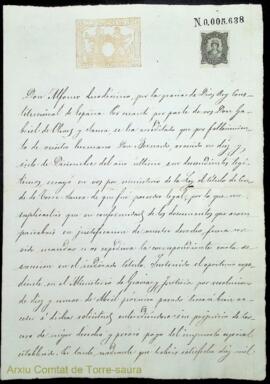 N.0,005,638
Don Alfonso duodécimo, por la gracia de Dios Rey Cons-
titucional de España. Por cuanto por parte de vos Don Ga-
briel de Olives y Saura se ha acreditado que por fallecimien-
to de vuestro hermano Don Bernardo ocurrido en diez y
siete de Diciembre del año último sin descendientes legí-
timos recayó en vos por ministerio de la Ley el título de Con-
de de Torre-Saura de que fué poseedor legal, por lo que
me suplicabais que en conformidad de los documentos que acom-
pañabais en justificación de vuestro derecho fuese ser-
vido mandar se os expidiera la correspondiente carta de
sucesion en el indicado título. Instruido el oportuno espe-
diente en el Ministerio de Gracia y Justicia por resolucion
de diez y nueve de Abril próximo pasado tuve á bien ac-
ceder á dicha solicitud, entendiéndose sin perjuicio de ter-
cero de mejor derecho y previo pago del impuesto especial
establecido. Por tanto, resultando que habeis satisfecho diez mil
Arxiu Comtat de Torre-saura